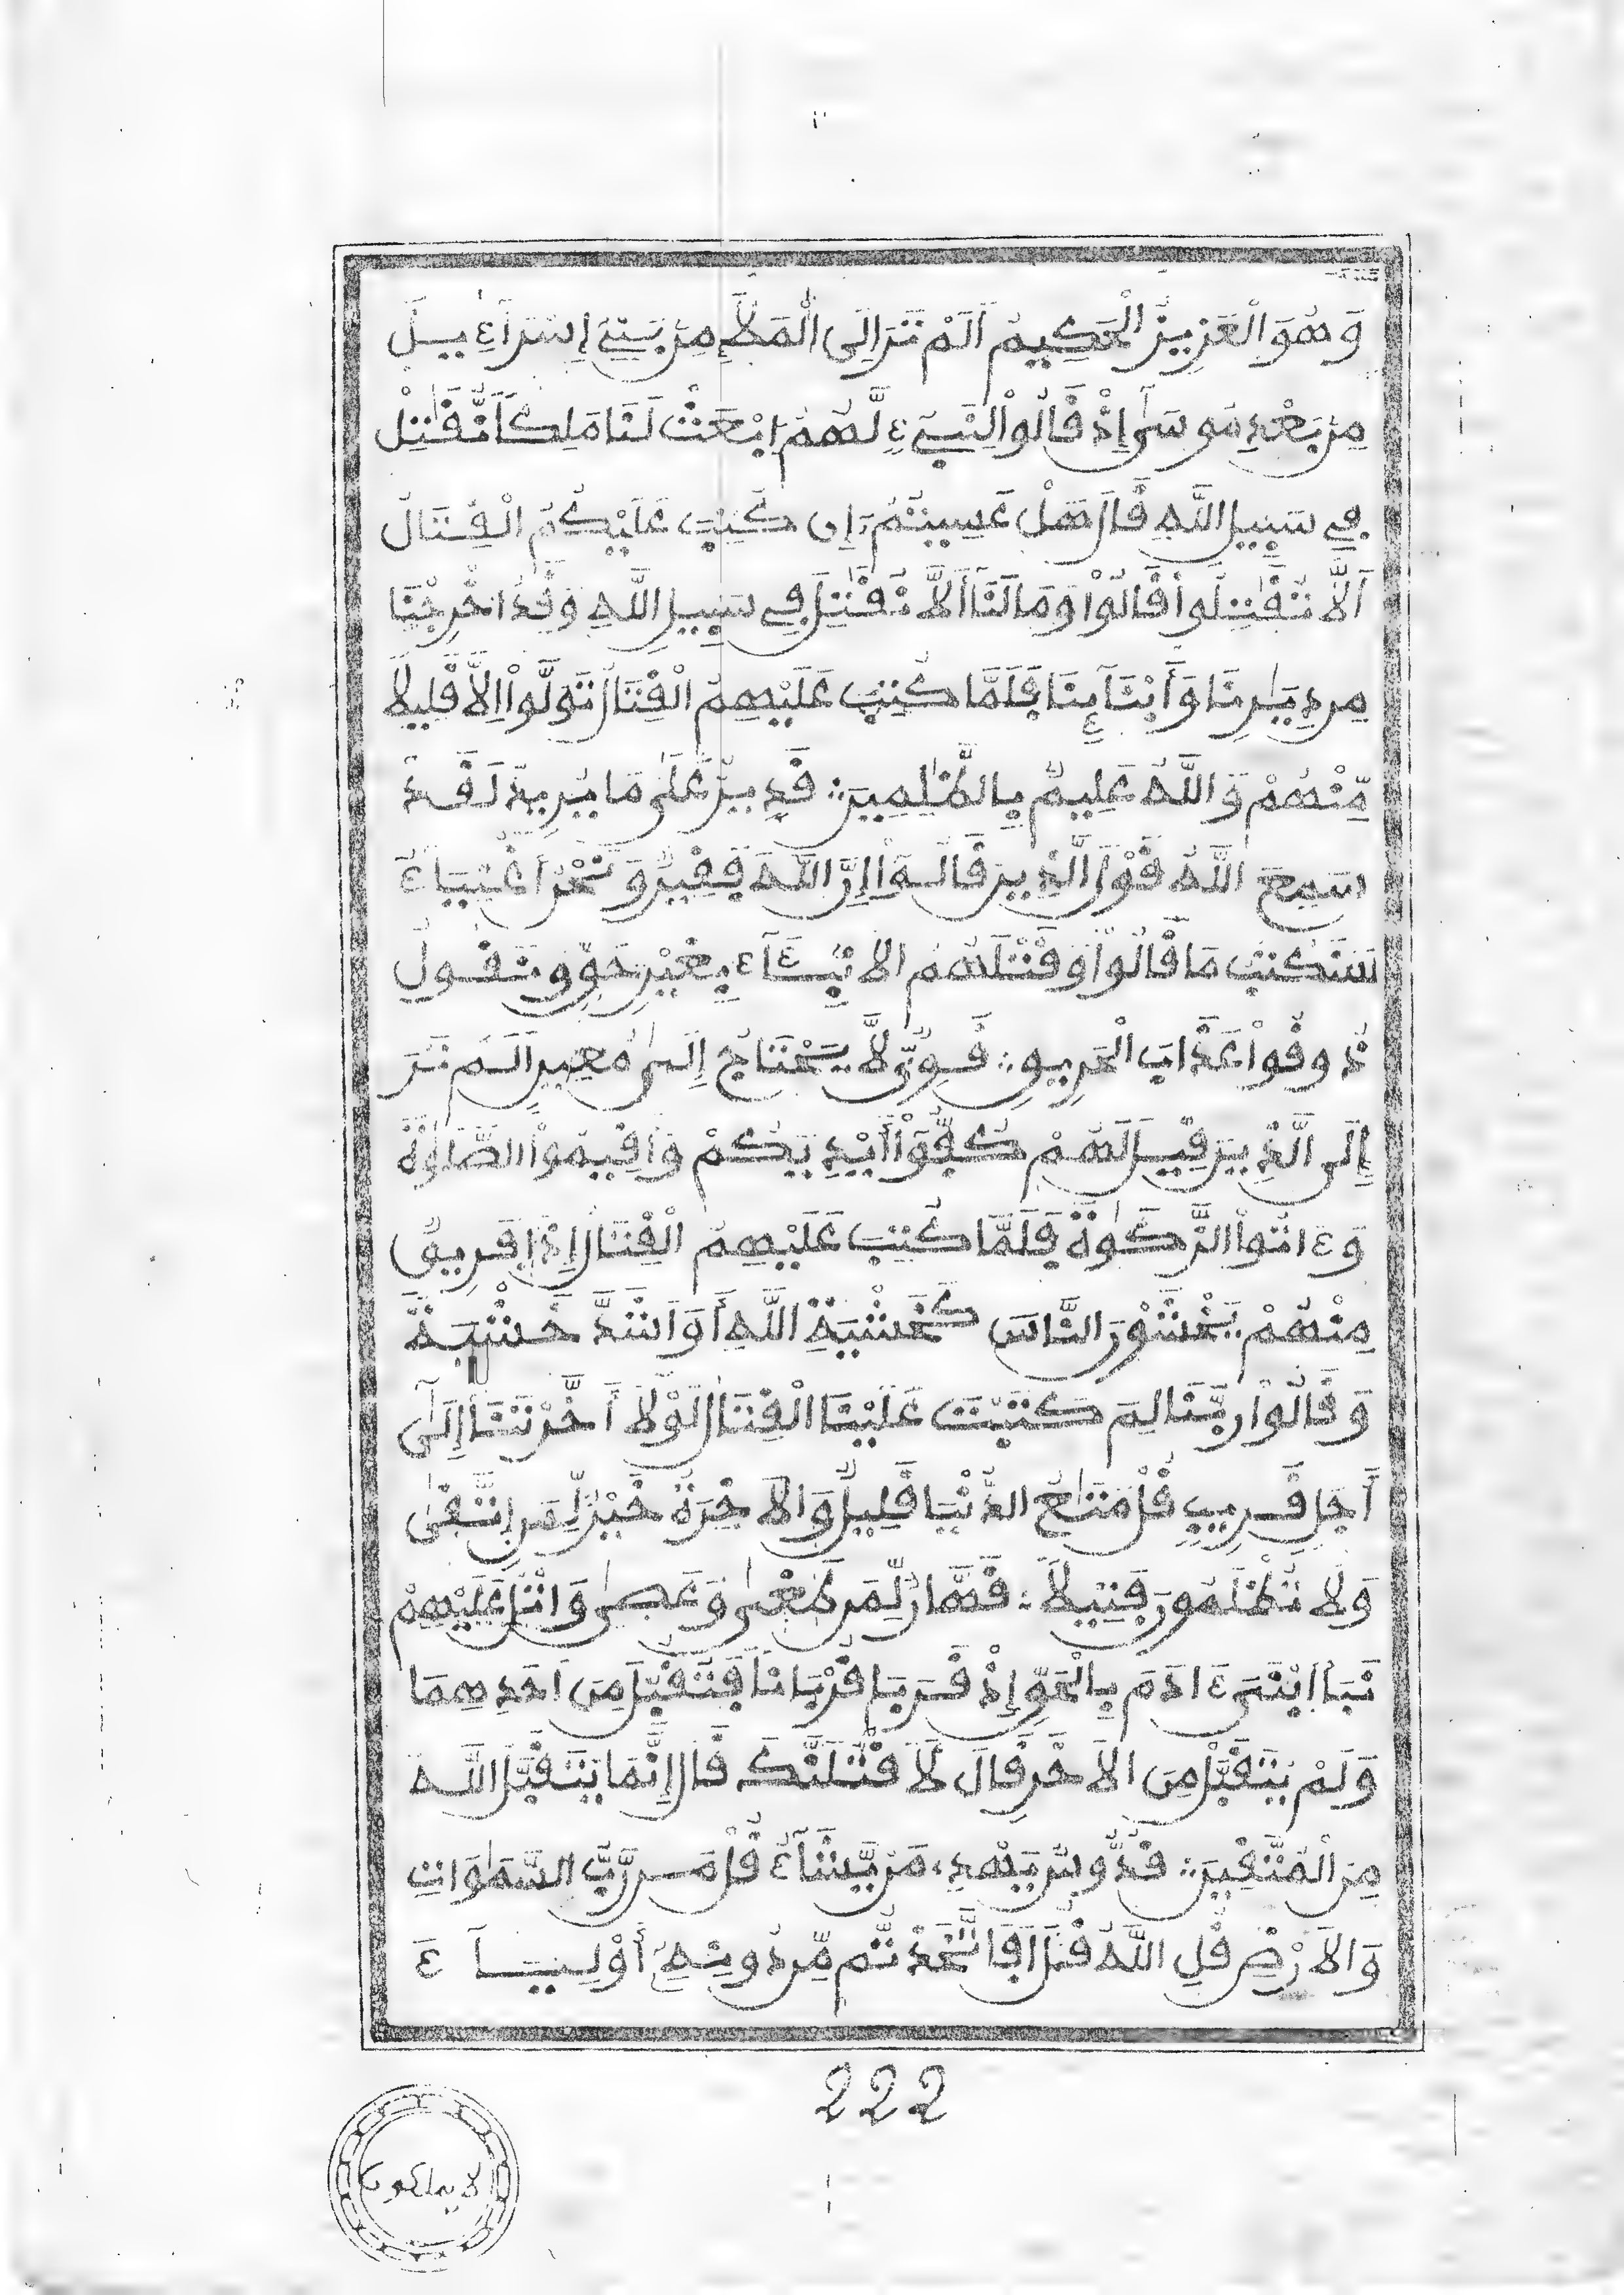 وَهُوَ الْعَزِيزُ الْحَكِيمُ أَلَمْ تَرَ إِلَى الْمَلَإِ مِنْ بَنِي إِسْرَآءِيلَ
مِنْ بَعْدِ مُوسَىٰ إِذْ قَالُواْ لِنَبِيٓءٍ لَّهُمُ ابْعَثْ لَنَا مَلِكاً نُّقَٰتِلْ
فِي سَبِيلِ اللَّهِ قَالَ هَلْ عَسِيتُمُ إِن كُتِبَ عَلَيْكُمُ الْقِتَالُ
أَلَّا تُقَٰتِلُواْ قَالُواْ وَمَا لَنَا أَلَّا نُقَٰتِلَ فِي سَبِيلِ اللَّهِ وَقَدُ اخْرِجْنَا
مِن دِيَٰرِنَا وَأَبْنَآئِنَا فَلَمَّا كُتِبَ عَلَيْهِمُ الْقِتَالُ تَوَلَّوِاْ اِلَّا قَلِيلاً
مِّنْهُمْ وَاللَّهُ عَلِيمٌ بِالظَّٰلِمِينَ ∴ قَدِيرٌ عَلَىٰ مَا يُرِيدُ لَقَدْ
سَمِعَ اللَّهُ قَوْلَ الَّذِينَ قَالُواْ إِنَّ اللَّهَ فَقِيرٌ وَنَحْنُ أَغْنِيَآءُ
سَنَكْتُبُ مَا قَالُواْ وَقَتْلَهُمُ الَانْبِئَآءَ بِغَيْرِ حَقٍّ وَنَقُولُ
ذُوقُواْ عَذَابَ الْحَرِيقِ ∴ قَوِيٌّ لَّا يَحْتَاجُ إِلَىٰ مُعِينٍ أَلَمْ تَرَ
إِلَى الَّذِينَ قِيلَ لَهُمْ كُفُّواْ أَيْدِيَكُمْ وَأَقِيمُواْ الصَّلَوٰةَ
وَءَاتُواْ الزَّكَوٰةَ فَلَمَّا كُتِبَ عَلَيْهِمُ الْقِتَالُ إِذَا فَرِيقٌ
مِنْهُمْ يَخْشَوْنَ النَّاسَ كَخَشْيَةِ اللَّهِ أَوَ اَشَدَّ خَشْيَةً
وَقَالُواْ رَبَّنَا لِمَ كَتَبْتَ عَلَيْنَا الْقِتَالَ لَوْلَا أَخَّرْتَنَا إِلَىٰ
أَجَلٍ قَرِيبٍ قُلْ مَتَٰعُ الدُّنْيَا قَلِيلٌ وَالَاخِرَةُ خَيْرٌ لِّمَنِ اِتَّقَىٰ
وَلَا تُظْلَمُونَ فَتِيلاً ∴ قَهَّارٌ لِّمَن طَغَىٰ وَعَصَىٰ وَاتْلُ عَلَيْهِمْ
نَبَأَ ابْنَيَ ءَادَمَ بِالْحَقِّ إِذْ قَرَّبَا قُرْبَاناً فَتُقُبِّلَ مِنَ اَحَدِهِمَا
وَلَمْ يُتَقَبَّلْ مِنَ الَاخَرِ قَالَ لَأَقْتُلَنَّكَ قَالَ إِنَّمَا يَتَقَبَّلُ اللَّهُ
مِنَ الْمُتَّقِينَ ∴ قُدُّوسٌ يَهْدِي مَنْ يَّشَآءُ قُلْ مَن رَّبُّ السَّمَٰوَاتِ
وَالَارْضِ قُلِ اللَّهُ قُلَ اَفَاتَّخَذْتُم مِّن دُونِهِ أَوْلِيَآءَ
222